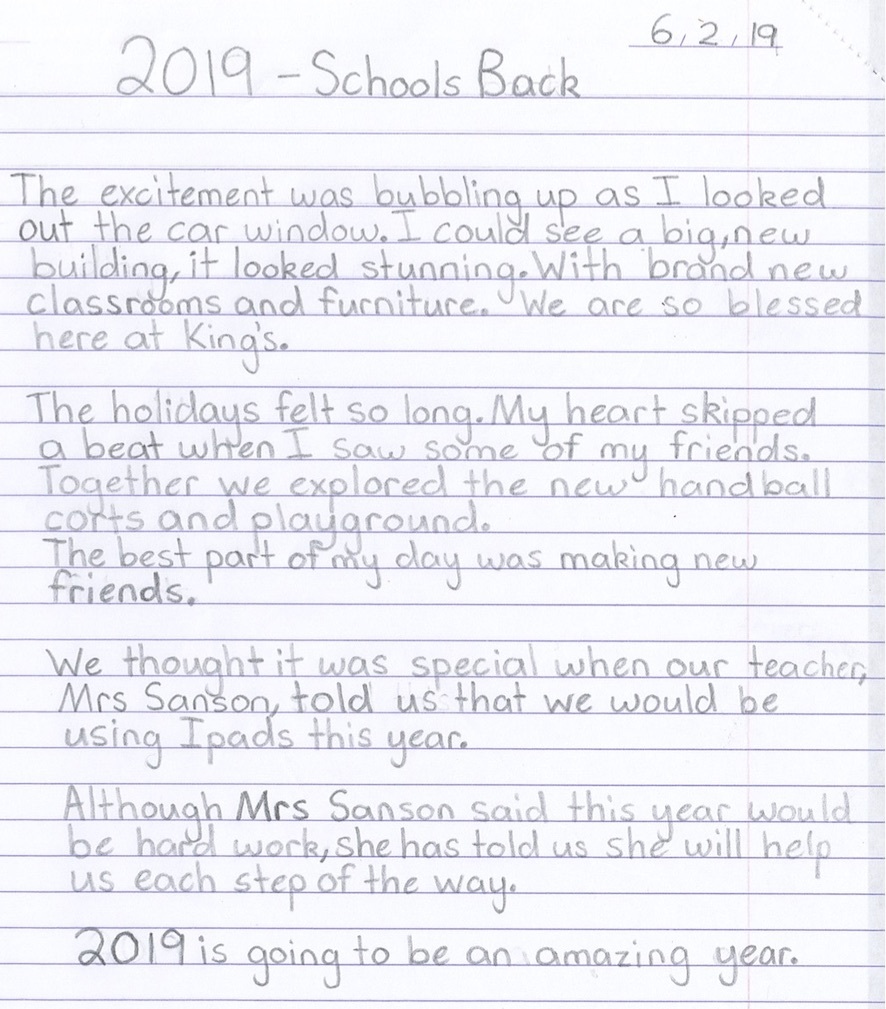 6,2,19
2019 - Schools Back
The excitement was bubbling up as I looked
out the car window. I could see a big, new
building, it looked stunning. With brand new
classrooms and furniture. We are so blessed
here at King's.
The holidays felt so long. My heart skipped
a beat when I saw some of my friends.
Together we explored the new handball
corts and playground.
The best part of my day was making new
friends.
We thought it was special when our teacher,
Mrs Sanson, told us that we would be
using Ipads this year.
Although Mrs Sanson said this year would
be hard work, she has told us she will help
us each step of the way.
2019 is going to be an amazing year.